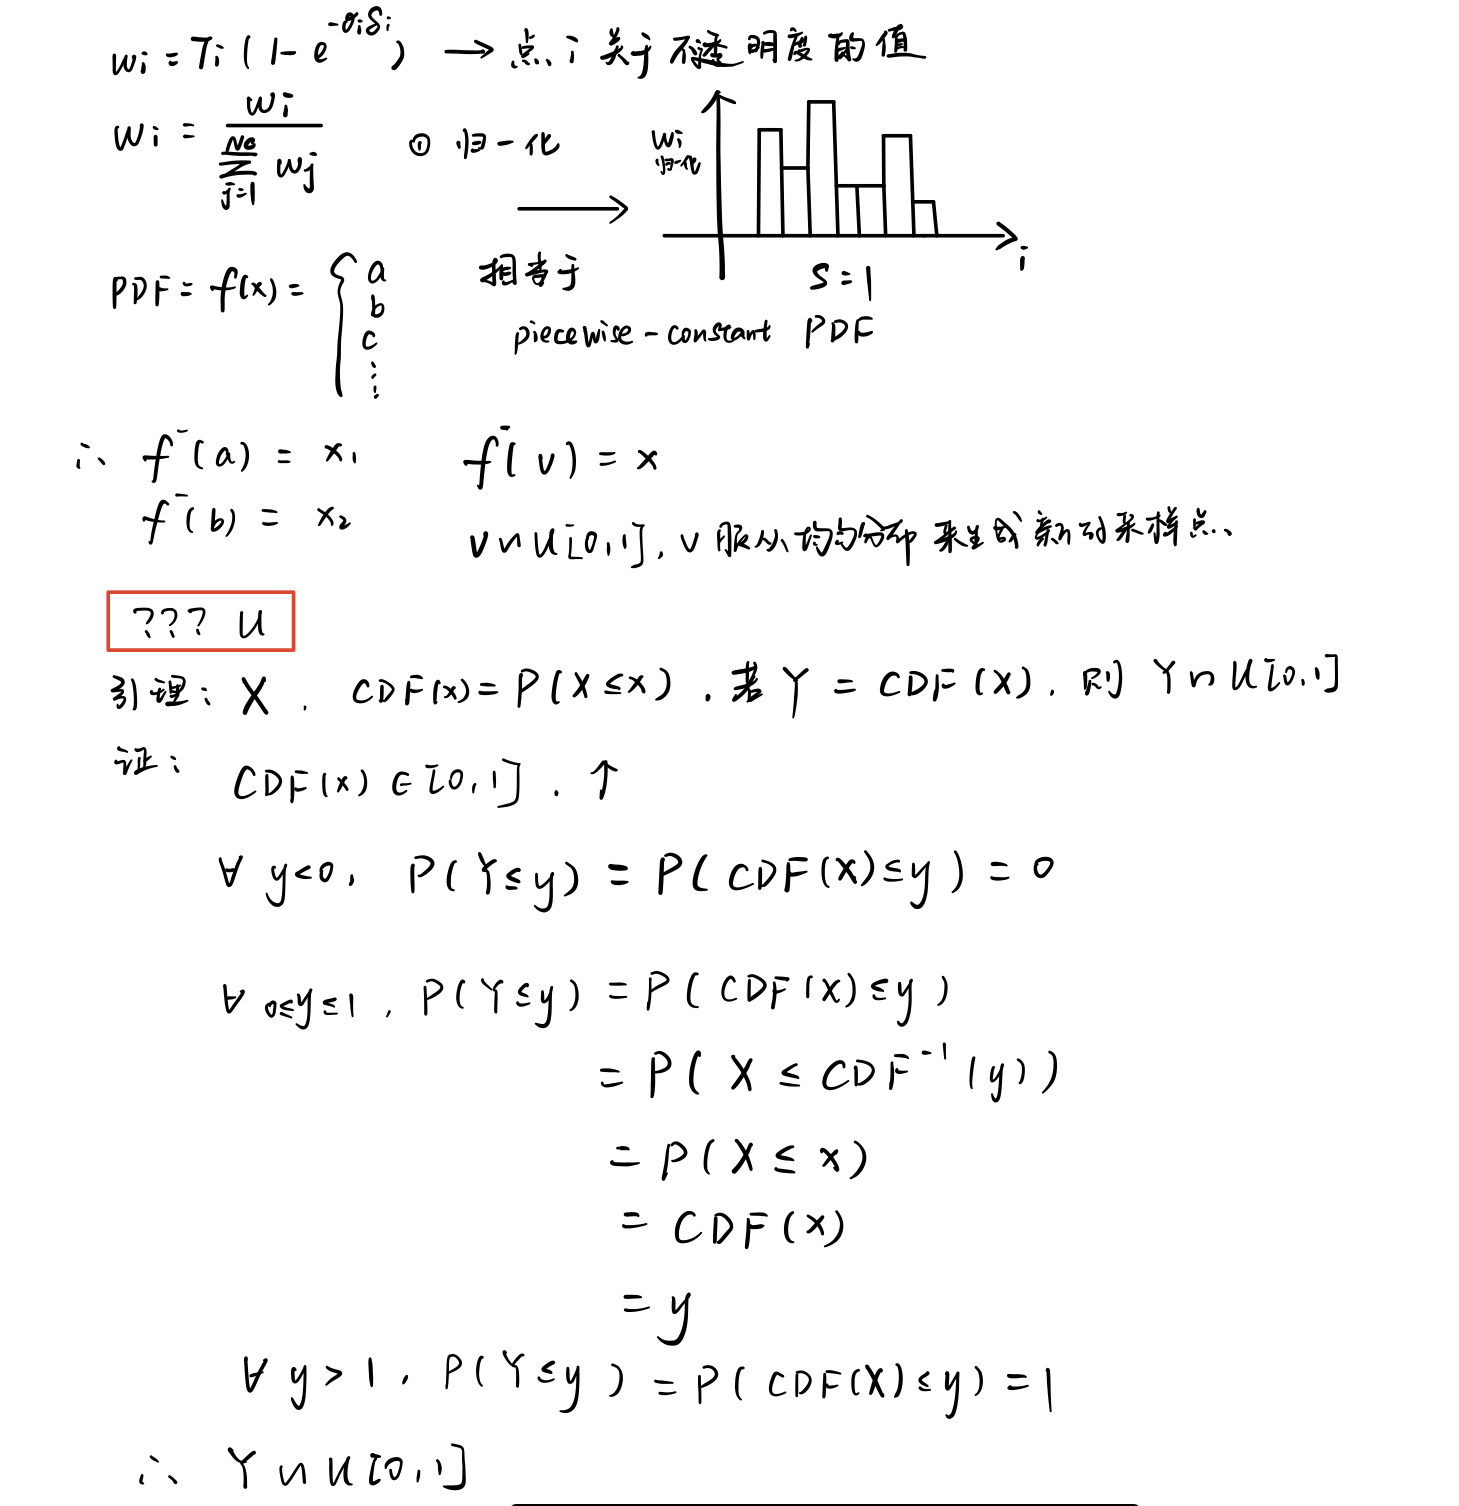 wi = Ti ( 1- e^{-σiδi} ) → 点 i 关于不透明度的值
wi = wi / Σ_{j=1}^{Nc} wj ① 归一化
wi 归一化
i
S = 1
PDF = f(x) = { a b c ⋮
相当于
piecewise-constant PDF
∴ f⁻(a) = x₁ f⁻(v) = x
f⁻(b) = x₂
v ~ U[0,1], v 服从均匀分布来生成新的采样点、
??? U
引理: X . CDF(x) = P(X ≤ x) . 若 Y = CDF(X). 则 Y ~ U[0,1]
证:
CDF(x) ∈ [0,1] . ↑
∀ y<0, P(Y≤y) = P(CDF(X)≤y) = 0
∀ 0≤y≤1 , P(Y≤y) = P(CDF(X)≤y)
= P( X ≤ CDF⁻¹(y))
= P(X ≤ x)
= CDF(x)
= y
∀ y > 1 , P(Y≤y) = P(CDF(X)≤y) = 1
∴ Y ~ U[0,1]